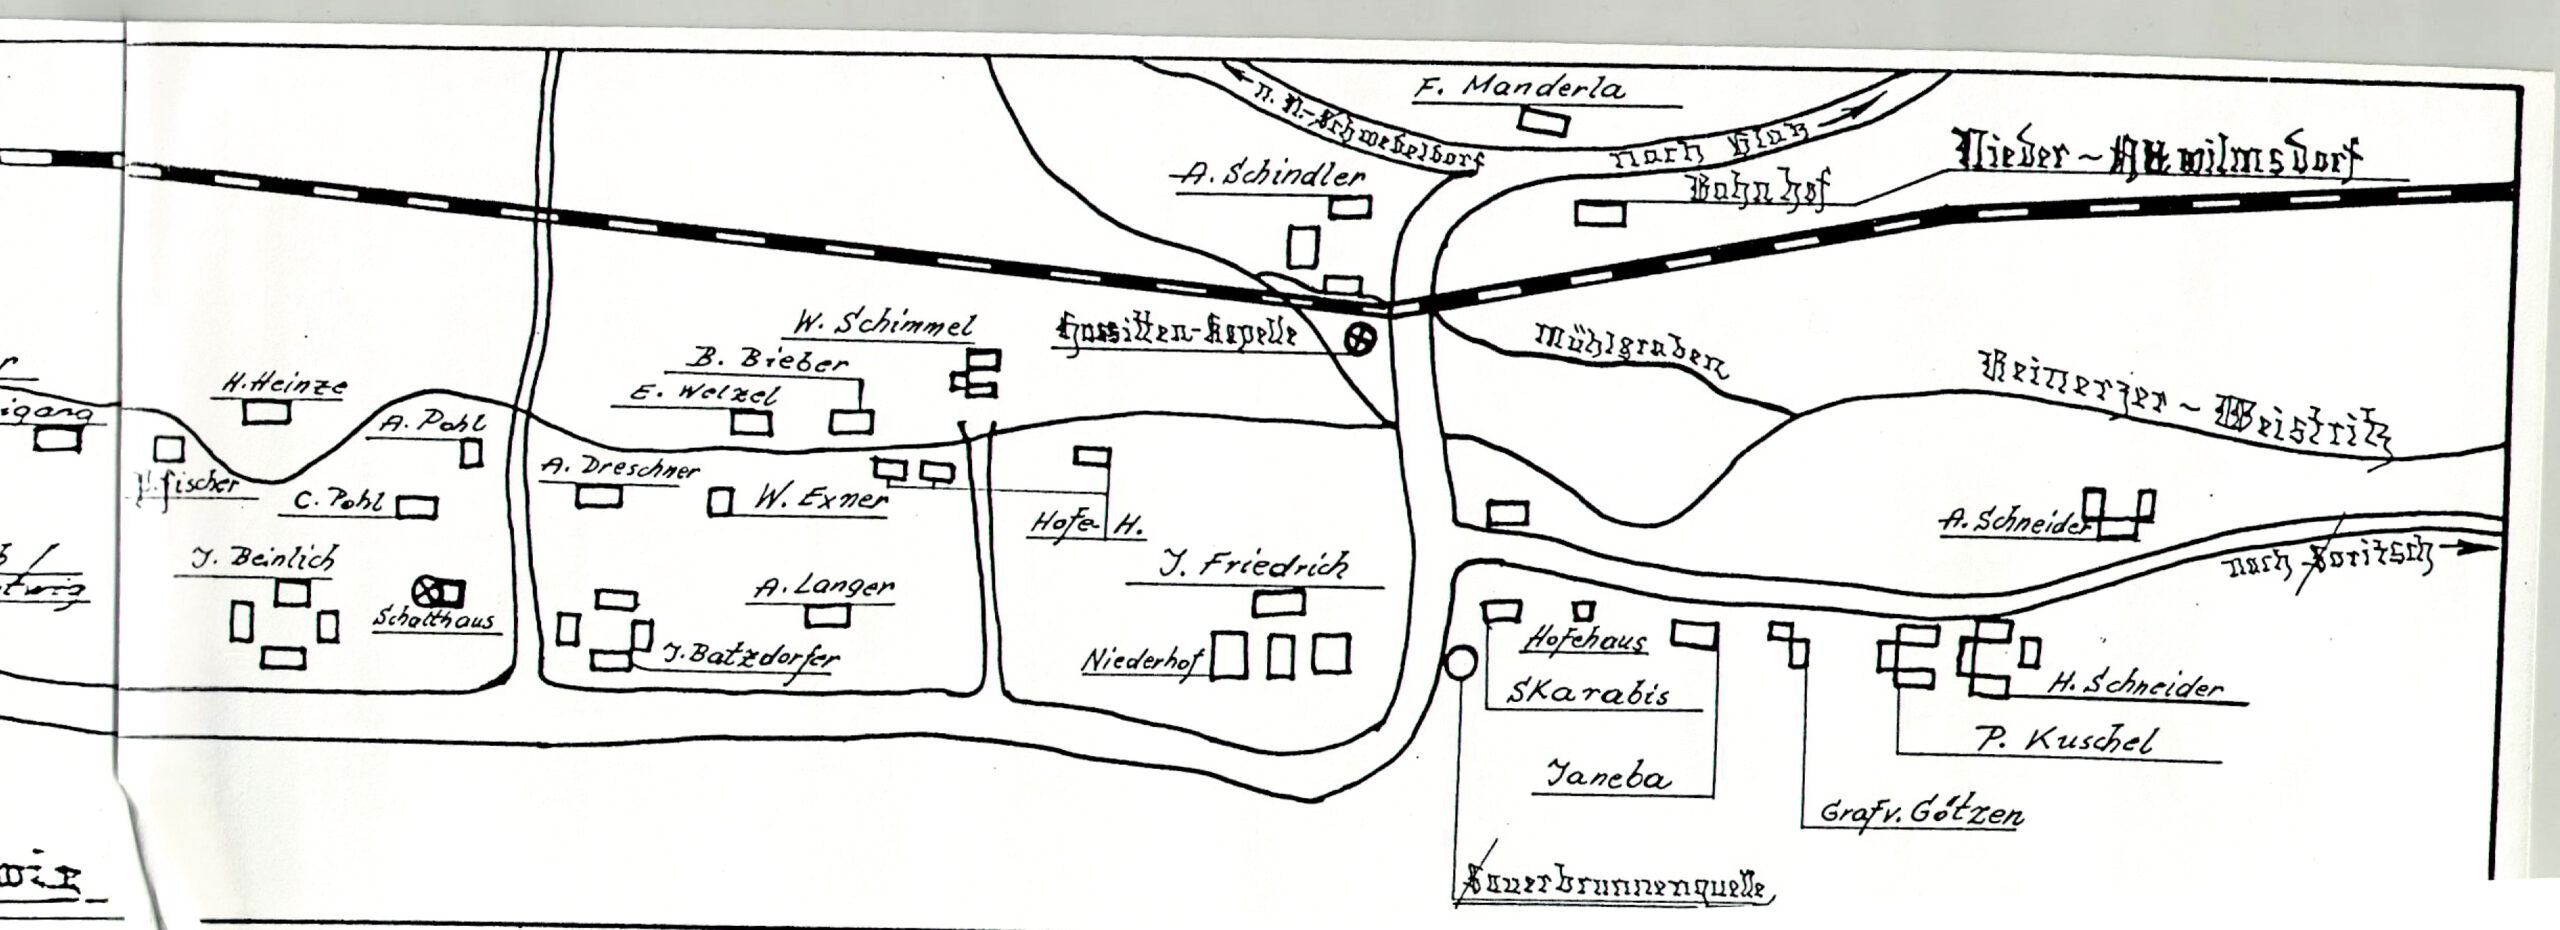 F. Manderla
n. N.-Schwedeldorf
nach Glatz
Nieder-Altwilmsdorf
A. Schindler
Bahnhof
W. Schimmel
Hussitten-Kapelle
Mühlgraben
B. Bieber
Reinerzer-Weistritz
H. Heinze
E. Welzel
igang
A. Pohl
A. Dreschner
fischer
C. Pohl
W. Exner
Hofe-H.
A. Schneider
nach Soritsch
J. Beinlich
J. Friedrich
twig
Schalthaus
A. Langer
Hofehaus
J. Batzdorfer
Niederhof
Skarabis
H. Schneider
P. Kuschel
Janeba
Graf v. Götzen
Sauerbrunnenquelle